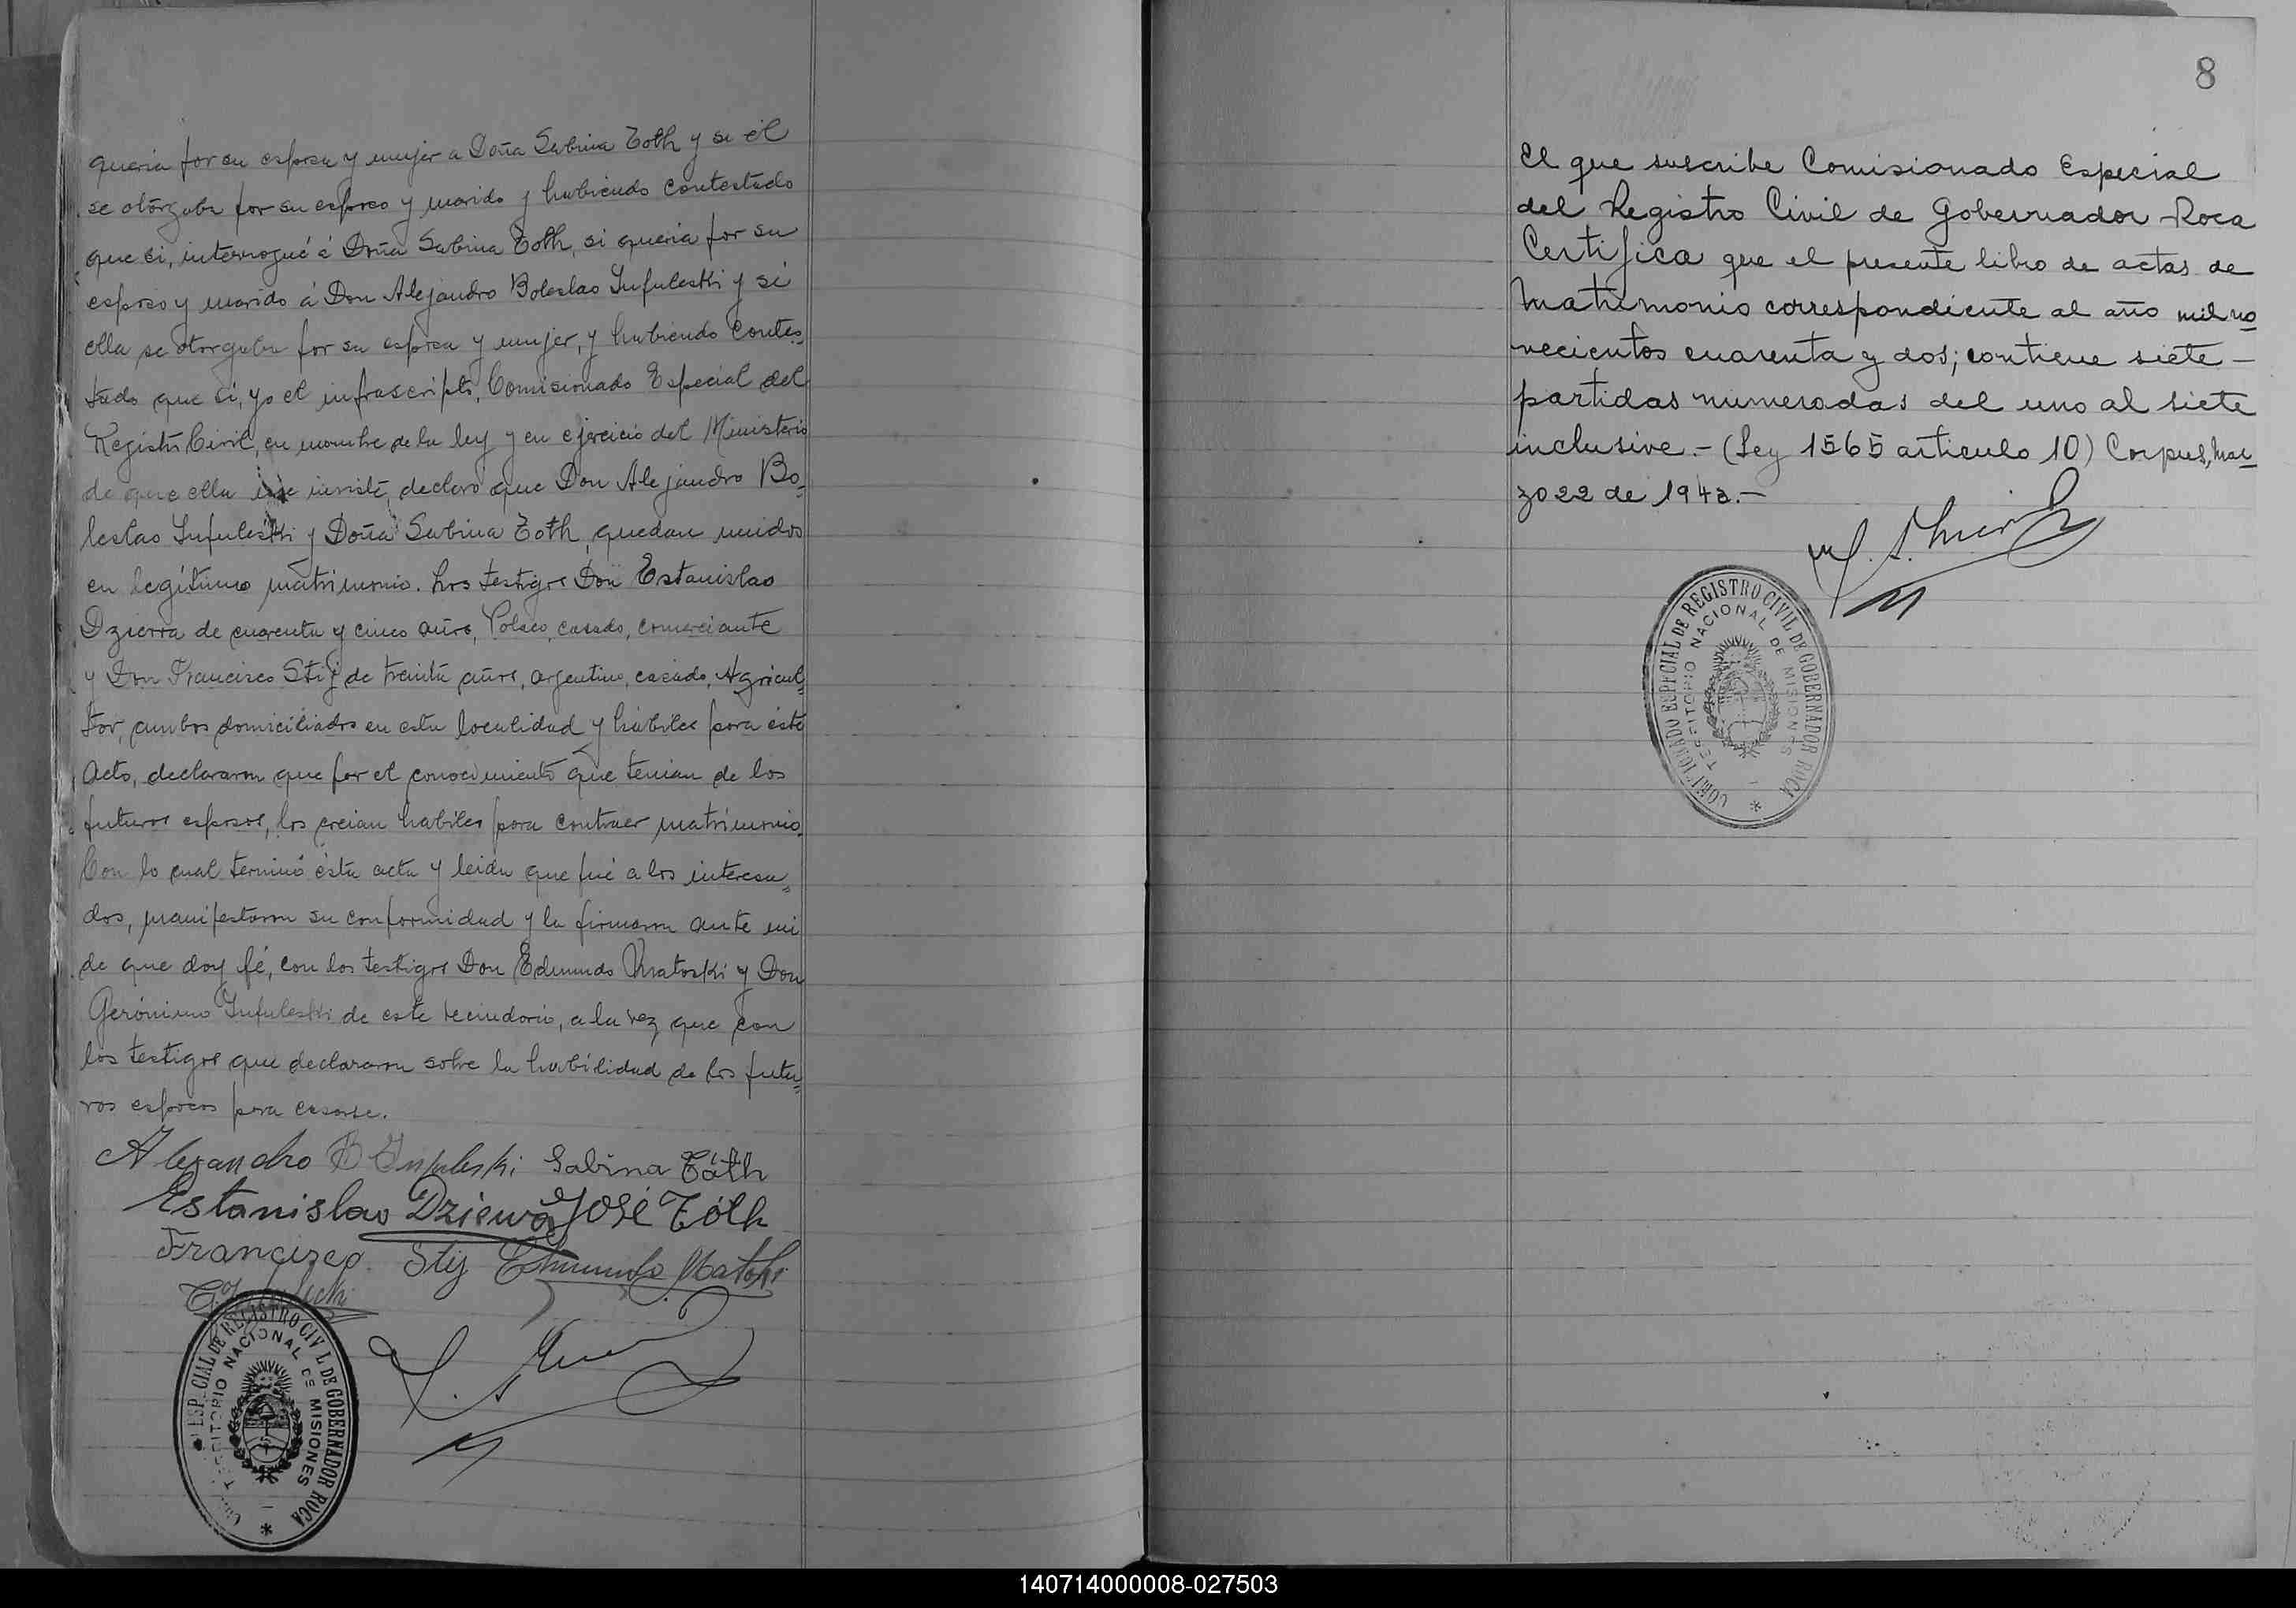 queria por su esposa y mujer a Doña Sabina Toth y si él
se otorgaba por su esposo y marido y habiendo contestado
que si, interrogué á Doña Sabina Toth, si queria por su
esposo y marido á Don Alejandro Boleslao Infuleski y si
ella se otorgaba por su esposa y mujer, y habiendo contes=
tado que si, yo el infrascripto, Comisionado Especial del
Registro Civil, en nombre de la ley y en ejercicio del Ministerio
de que ella me inviste, declaro que Don Alejandro Bo=
leslao Infuleski y Doña Sabina Toth, quedan unidos
en legítimo matrimonio. Los testigos Don Estanislao
Dzierva de cuarenta y cinco años, Polaco, casado, comerciante
y Don Francisco Stij de treinta años, argentino, casado, Agricul=
tor, ambos domiciliados en esta localidad y hábiles para éste
Acto, declararon que por el conocimiento que tenian de los
futuros esposos, los creian habiles para contraer matrimonio.
Con lo cual terminó ésta acta y leida que fué a los interesa=
dos, manifestaron su conformidad y la firmaron ante mi
de que doy fé, con los testigos Don Edmundo Matoski y Don
Gerónimo Infuleski de este vecindario, a la vez que con
los testigos que declararon sobre la habilidad de los futu=
ros esposos para casarse.
Alejandro B Infuleski Sabina Tóth
Estanislao Dzierwa José Tóth
Francizco Stij Edmundo Matoski
ESPECIAL DE REGISTRO CIVIL DE GOBERNADOR ROCA
TERRITORIO NACIONAL DE MISIONES
8
El que suscribe Comisionado Especial
del Registro Civil de Gobernador Roca
Certifica que el presente libro de actas de
Matrimonio correspondiente al año mil no
vecientos cuarenta y dos; contiene siete —
partidas numeradas del uno al siete
inclusive.- (Ley 1565 articulo 10) Corpus, Mar
zo 22 de 1943.—
COMISIONADO ESPECIAL DE REGISTRO CIVIL DE GOBERNADOR ROCA
TERRITORIO NACIONAL DE MISIONES
140714000008-027503